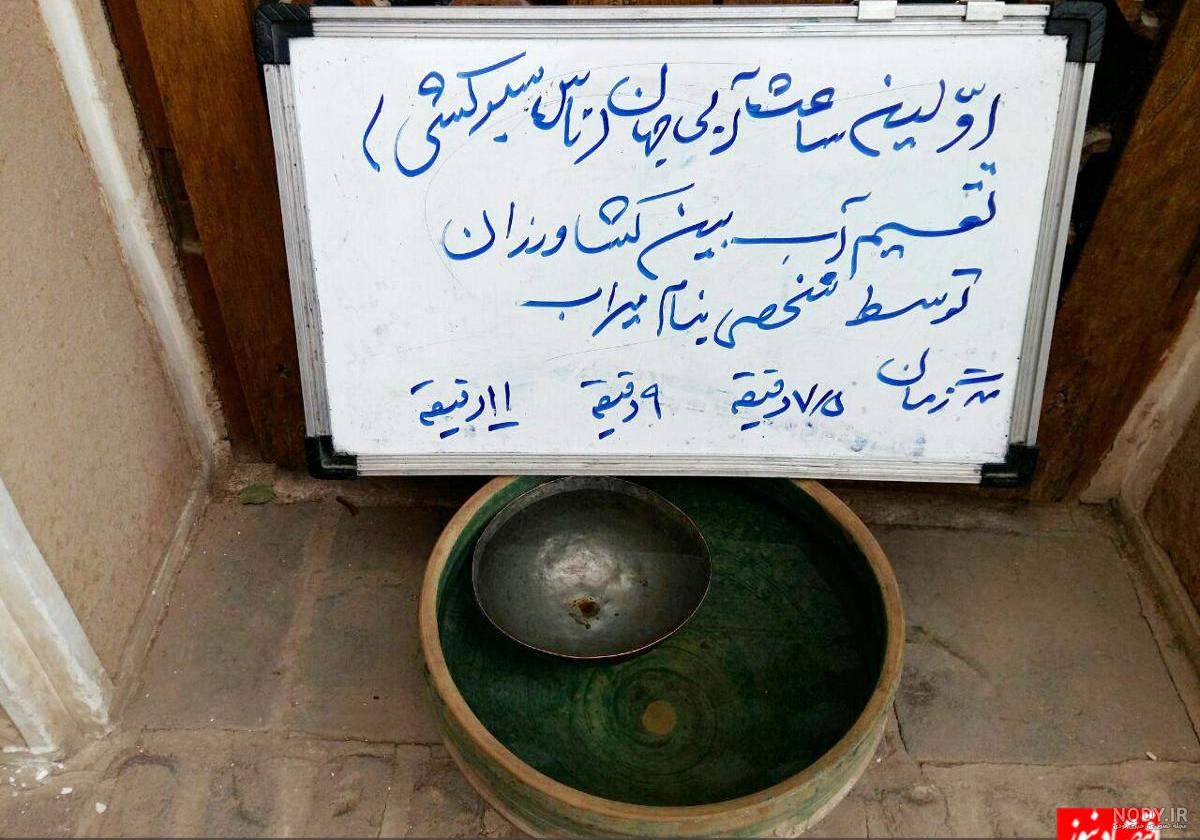 اوّلین ساعت آبی جهان (تاس سبوکشی)
تقسیم آب بین کشاورزان
توسط شخصی بنام میراب
مدت زمان ۷/۵ دقیقه ۹ دقیقه ۱۱ دقیقه
NODY.IR